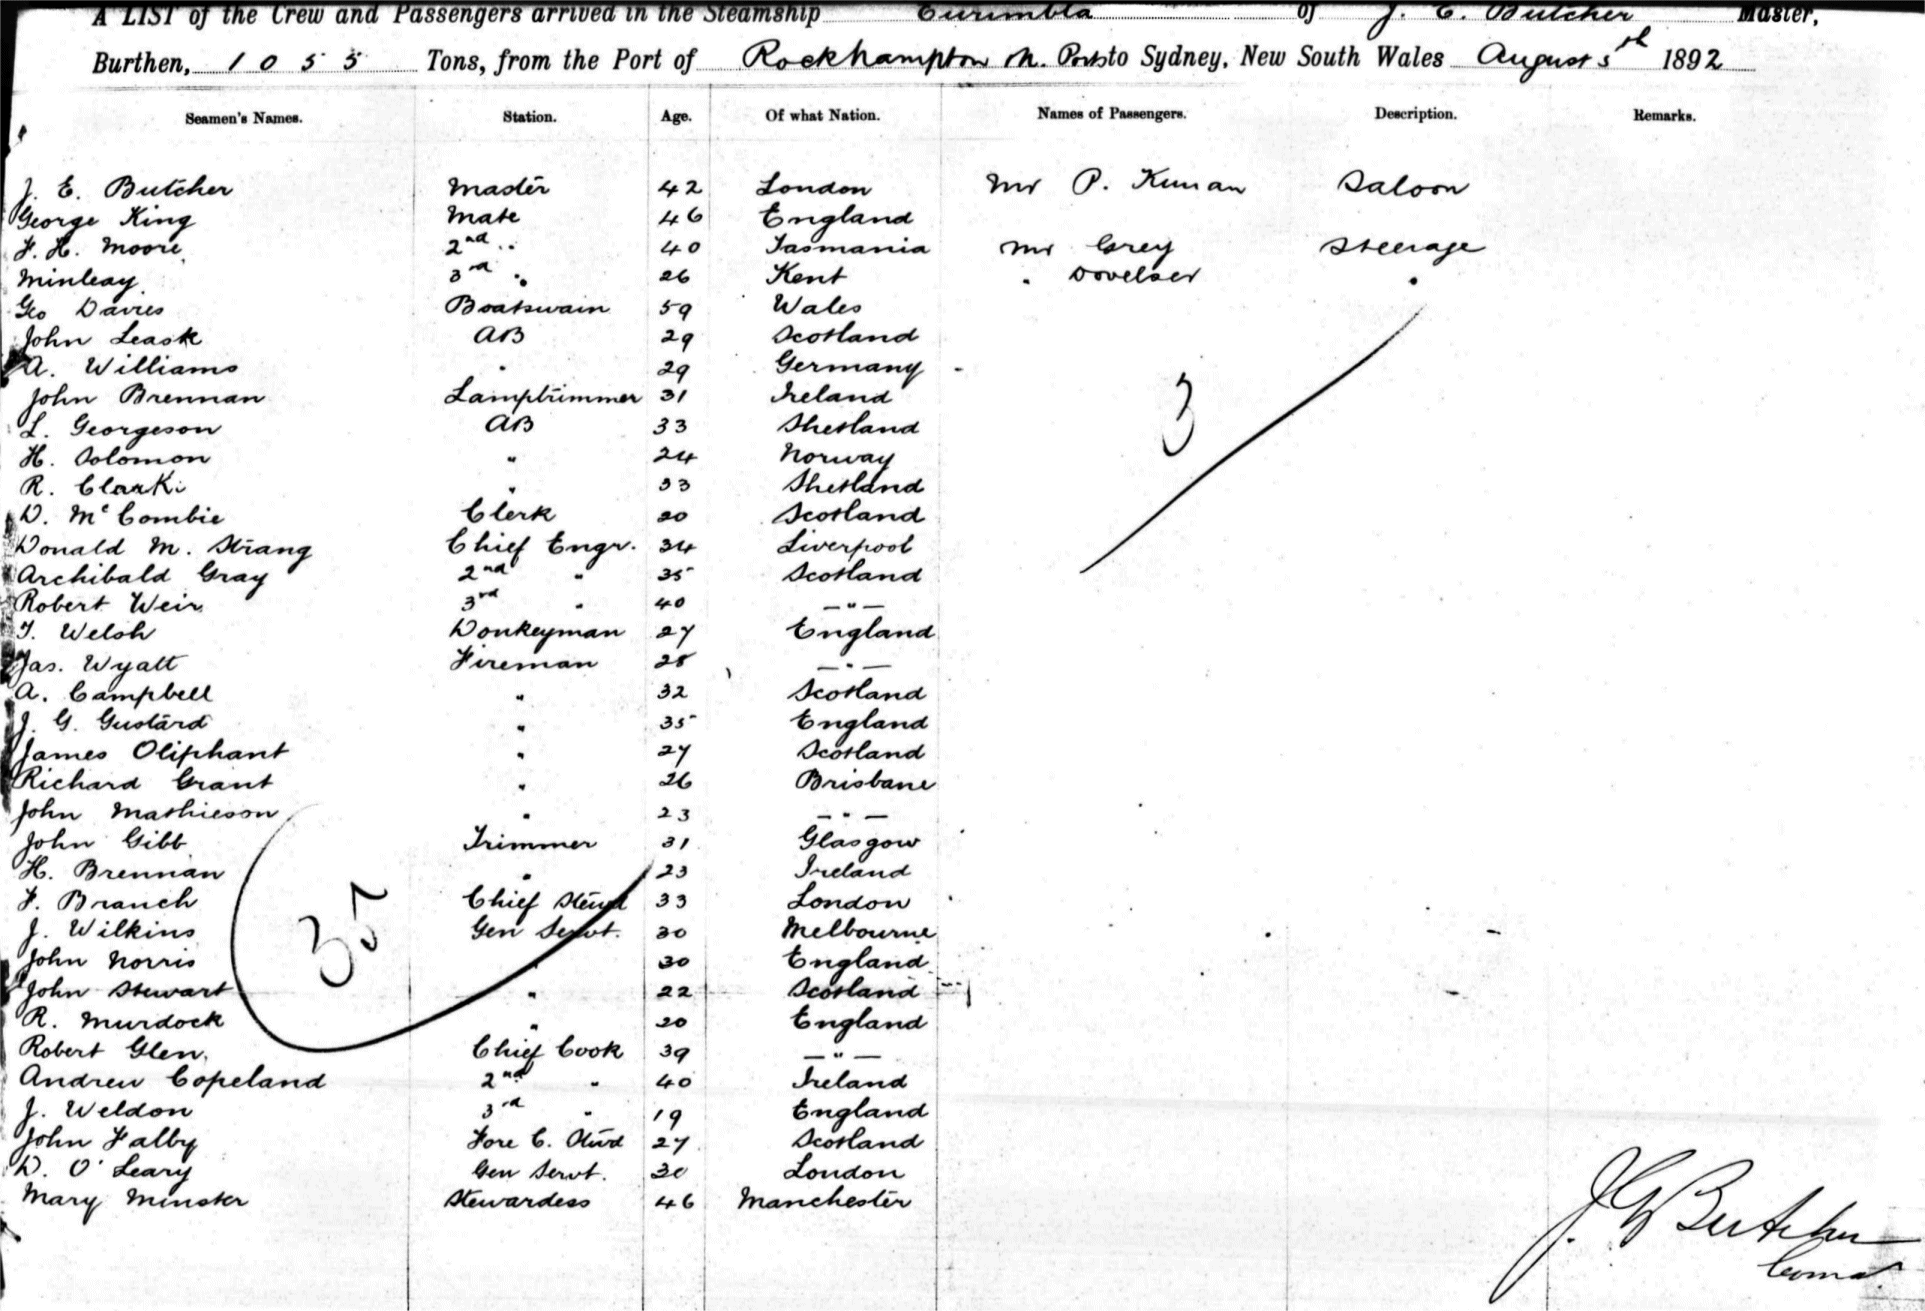 A LIST of the Crew and Passengers arrived in the Steamship Eurimbla of J. E. Butcher Master,
Burthen, 1055 Tons, from the Port of Rockhampton M. Ports to Sydney, New South Wales August 5th 1892
Seamen's Names. Station. Age. Of what Nation. Names of Passengers. Description. Remarks.
J. E. Butcher Master 42 London Mr P. Kunan Saloon
George King Mate 46 England
F. H. Moore 2nd " 40 Tasmania Mr Grey Steerage
Minleay 3rd " 26 Kent " "
Geo Davies Boatswain 59 Wales
John Leask AB 29 Scotland
A. Williams " 29 Germany
John Brennan Lamptrimmer 31 Ireland
L. Georgeson AB 33 Shetland
H. Solomon " 24 Norway
R. Clark " 33 Shetland
D. McCombie Clerk 20 Scotland
Donald M. Strang Chief Engr. 34 Liverpool
Archibald Gray 2nd " 35 Scotland
Robert Weir 3rd " 40 — " —
T. Welsh Donkeyman 27 England
Jas. Wyatt Fireman 28 — " —
A. Campbell " 32 Scotland
J. G. Gustard " 35 England
James Oliphant " 27 Scotland
Richard Grant " 26 Brisbane
John Mathieson " 23 — " —
John Gibb Trimmer 31 Glasgow
H. Brennan " 23 Ireland
F. Branch Chief Stewd 33 London
J. Wilkins Gen Servt. 30 Melbourne
John Norris " 30 England
John Stewart " 22 Scotland
R. Murdock " 20 England
Robert Glen. Chief Cook 39 — " —
Andrew Copeland 2nd " 40 Ireland
J. Weldon 3rd " 19 England
John Falby Fore C. Stwd 27 Scotland
D. O'Leary Gen Servt. 30 London
Mary Minster Stewardess 46 Manchester
3
35
J E Butcher